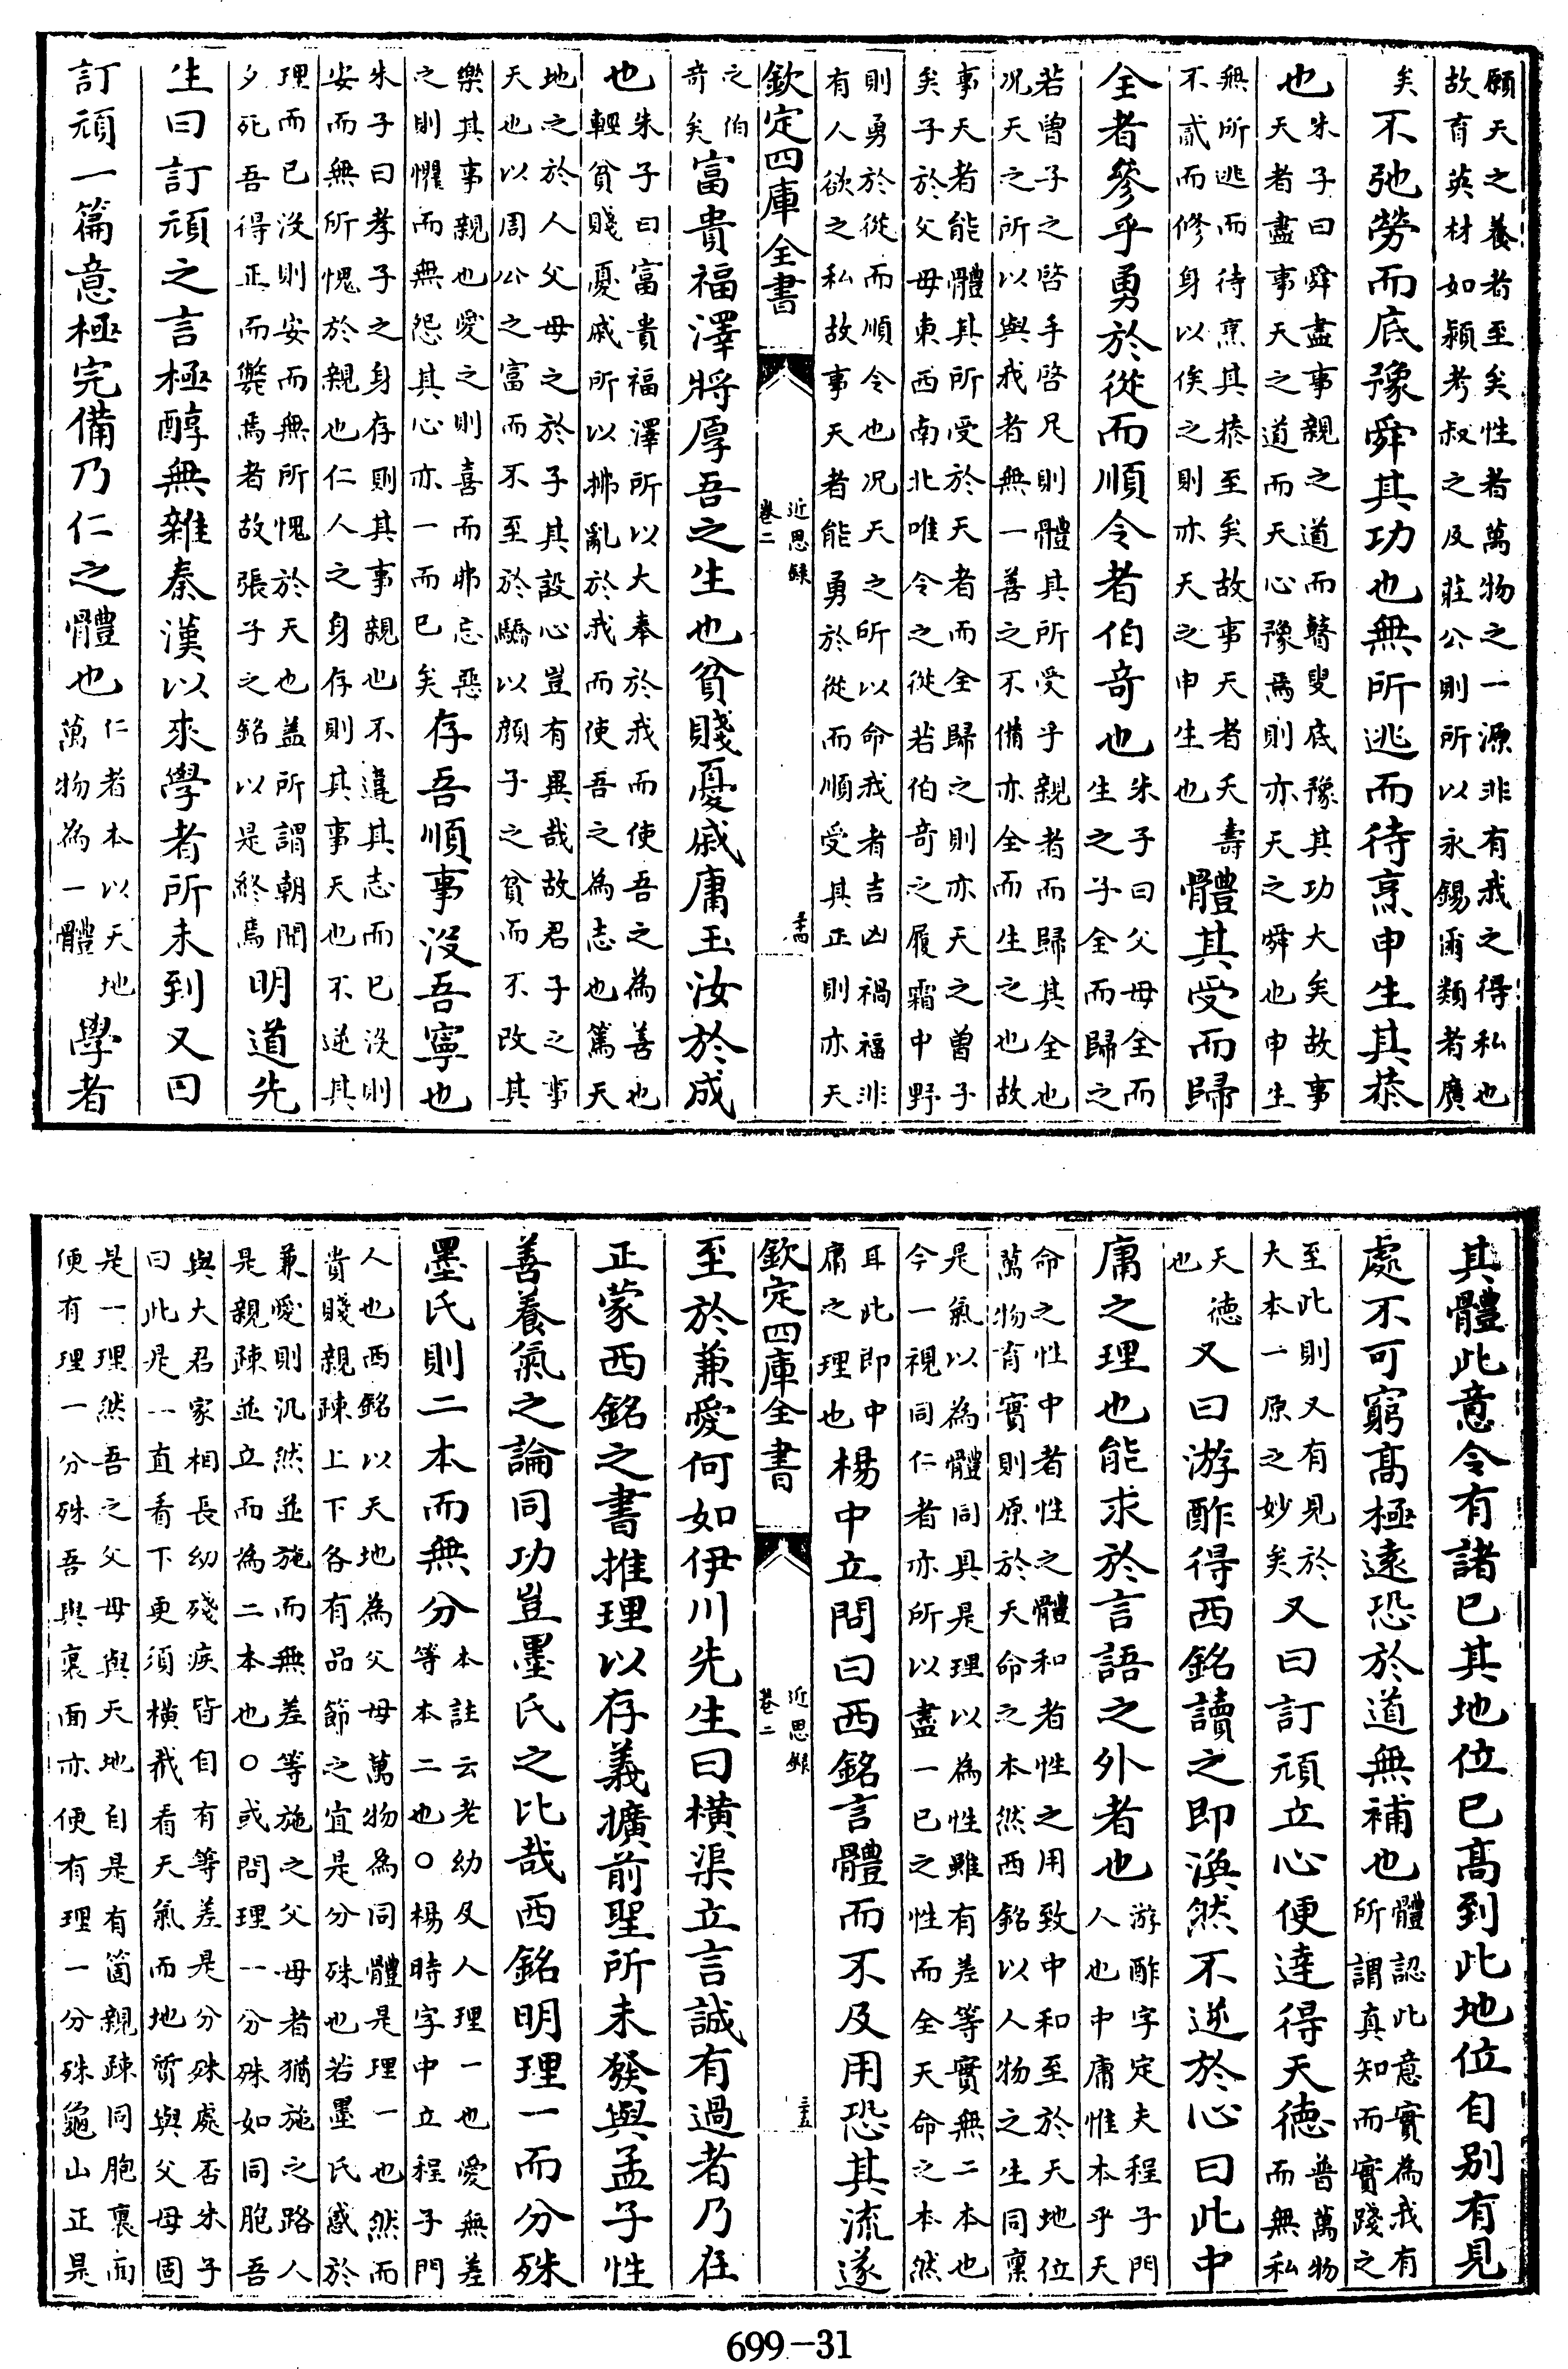 願天之養者至矣性者萬物之一源非有我之得私也
故育英材如潁考叔之及莊公則所以永錫爾類者廣
矣不弛勞而底豫舜其功也無所逃而待烹申生其恭
也朱子曰舜盡事親之道而瞽叟底豫其功大矣故事
天者盡事天之道而天心豫焉則亦天之舜也申生
無所逃而待烹其恭至矣故事天者夭壽
不貳而修身以俟之則亦天之申生也體其受而歸
全者參乎勇於從而順令者伯奇也朱子曰父母全而
生之子全而歸之
若曾子之啓手啓足則體其所受乎親者而歸其全也
况天之所以與我者無一善之不備亦全而生之也故
事天者能體其所受於天者而全歸之則亦天之曾子
矣子於父母東西南北唯令之從若伯奇之履霜中野
則勇於從而順令也况天之所以命我者吉凶禍福非
有人欲之私故事天者能勇於從而順受其正則亦天
欽定四庫全書 近思録 卷二 二十四
之伯
奇矣富貴福澤將厚吾之生也貧賤憂戚庸玉汝於成
也朱子曰富貴福澤所以大奉於我而使吾之為善也
輕貧賤憂戚所以拂亂於我而使吾之為志也篤天
地之於人父母之於子其設心豈有異哉故君子之事
天也以周公之富而不至於驕以顔子之貧而不改其
樂其事親也愛之則喜而弗忘惡
之則懼而無怨其心亦一而已矣存吾順事沒吾寧也
朱子曰孝子之身存則其事親也不違其志而已沒則
安而無所愧於親也仁人之身存則其事天也不逆其
理而已沒則安而無所愧於天也盖所謂朝聞
夕死吾得正而斃焉者故張子之銘以是終焉明道先
生曰訂頑之言極醇無雜秦漢以來學者所未到又曰
訂頑一篇意極完備乃仁之體也仁者本以天地
萬物為一體學者
其體此意令有諸已其地位已高到此地位自别有見
處不可窮高極遠恐於道無補也體認此意實為我有
所謂真知而實踐之
至此則又有見於
大本一原之妙矣又曰訂頑立心便達得天德普萬物
而無私
天德
也又曰游酢得西銘讀之即渙然不逆於心曰此中
庸之理也能求於言語之外者也游酢字定夫程子門
人也中庸惟本乎天
命之性中者性之體和者性之用致中和至於天地位
萬物育實則原於天命之本然西銘以人物之生同禀
是氣以為體同具是理以為性雖有差等實無二本也
今一視同仁者亦所以盡一已之性而全天命之本然
耳此即中
庸之理也楊中立問曰西銘言體而不及用恐其流遂
欽定四庫全書 近思録 卷二 二十五
至於兼愛何如伊川先生曰橫渠立言誠有過者乃在
正蒙西銘之書推理以存義擴前聖所未發與孟子性
善養氣之論同功豈墨氏之比哉西銘明理一而分殊
墨氏則二本而無分本註云老幼及人理一也愛無差
等本二也○楊時字中立程子門
人也西銘以天地為父母萬物為同體是理一也然而
貴賤親疎上下各有品節之宜是分殊也若墨氏惑於
兼愛則汎然並施而無差等施之父母者猶施之路人
是親疎並立而為二本也○或問理一分殊如同胞吾
與大君家相長幼殘疾皆自有等差是分殊處否朱子
曰此是一直看下更須橫截看天氣而地質與父母固
是一理然吾之父母與天地自是有箇親疎同胞裏面
便有理一分殊吾與裏面亦便有理一分殊龜山正是